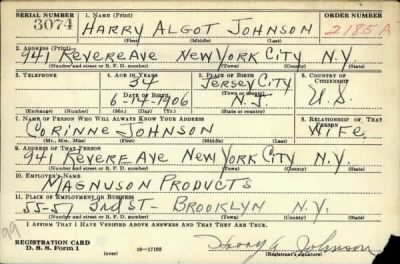 SERIAL NUMBER 1. NAME (Print) ORDER NUMBER
3074 HARRY ALGOT JOHNSON 2185A
(First) (Middle) (Last)
2. ADDRESS (Print)
941 REVERE AVE NEW YORK CITY N.Y.
(Number and street or R. F. D. number) (Town) (County) (State)
3. TELEPHONE 4. AGE IN YEARS 5. PLACE OF BIRTH 6. COUNTRY OF CITIZENSHIP
34 JERSEY CITY
DATE OF BIRTH (Town or county)
6-14-1906 N.J. U.S.
(Exchange) (Number) (Mo.) (Day) (Yr.) (State or country)
7. NAME OF PERSON WHO WILL ALWAYS KNOW YOUR ADDRESS 8. RELATIONSHIP OF THAT PERSON
CORINNE JOHNSON WIFE
(Mr., Mrs., Miss) (First) (Middle) (Last)
9. ADDRESS OF THAT PERSON
941 REVERE AVE NEW YORK CITY N.Y.
(Number and street or R. F. D. number) (Town) (County) (State)
10. EMPLOYER'S NAME
MAGNUSON PRODUCTS
11. PLACE OF EMPLOYMENT OR BUSINESS
55-57 2ND ST- BROOKLYN N.Y.
(Number and street or R. F. D. number) (Town) (County) (State)
I AFFIRM THAT I HAVE VERIFIED ABOVE ANSWERS AND THAT THEY ARE TRUE.
99
REGISTRATION CARD
D. S. S. Form 1 (over) 16-17105 Harry A Johnson
(Registrant's signature)